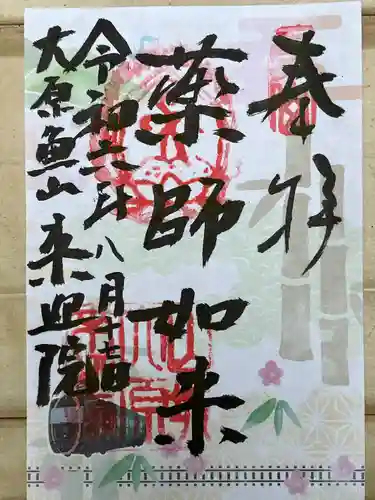 奉拝
薬師如来
令和六年八月十二日
大原魚山 来迎院